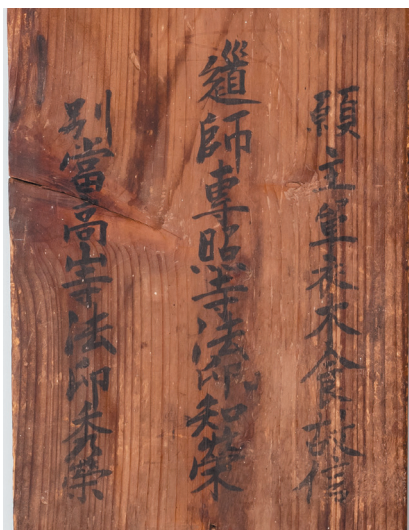 願主草衣木食故信
導師専照寺法印知榮
別當高山寺法印秀榮